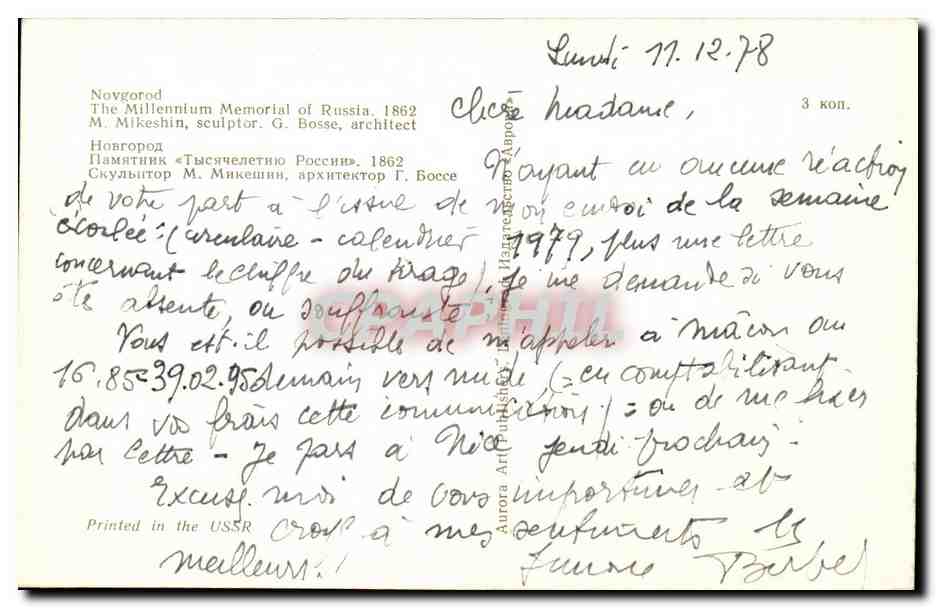 Lundi 11.12.78
Novgorod
The Millennium Memorial of Russia. 1862
M. Mikeshin, sculptor. G. Bosse, architect
Chère Madame,
3 коп.
Новгород
Памятник «Тысячелетию России». 1862
Скульптор М. Микешин, архитектор Г. Боссе
N'ayant eu aucune réaction
de votre part à l'issue de mon envoi de la semaine
écoulée: (circulaire - calendrier 1979, plus une lettre
concernant le chiffre du tirage), je me demande si vous
été absente, ou souffrante!
Vous est-il possible de m'appeler à Mâcon au
16.85=39.02.95 demain vers midi, (= en comptabilisant
dans vos frais cette communication) = ou de me
par lettre - Je pars à Nice jeudi prochain -
Excusez-moi de vous importuner et
à mes sentiments ls
meilleurs!
Printed in the USSR
Aurora Art Publishers. Leningrad. Издательство «Аврора»
GRAPHIL